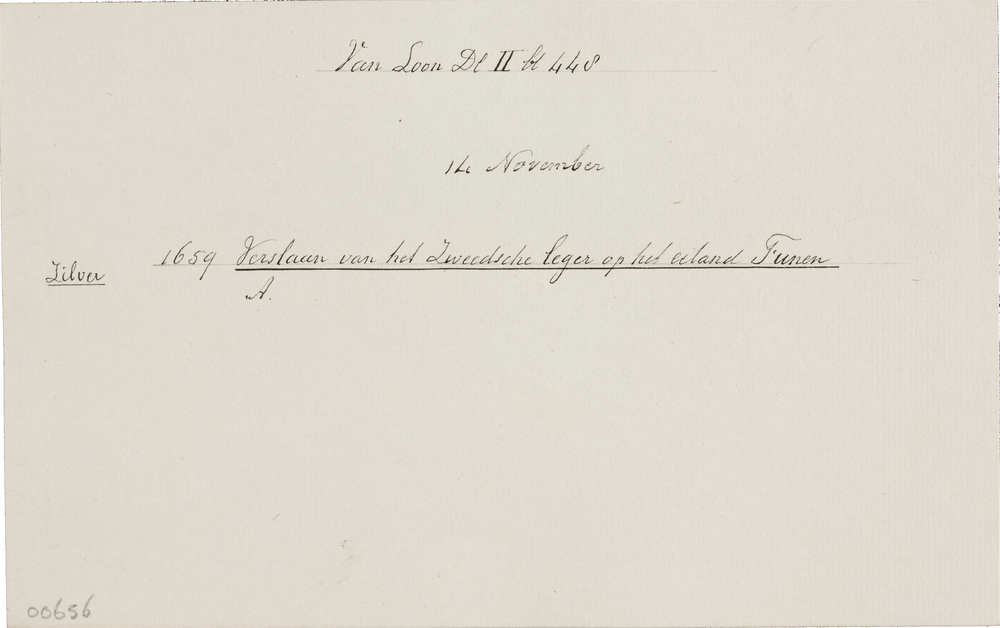 Van Loon Dl II bl 448
14 November
1659 Verslaan van het Zweedsche leger op het eiland Funen
Zilver
A.
00656